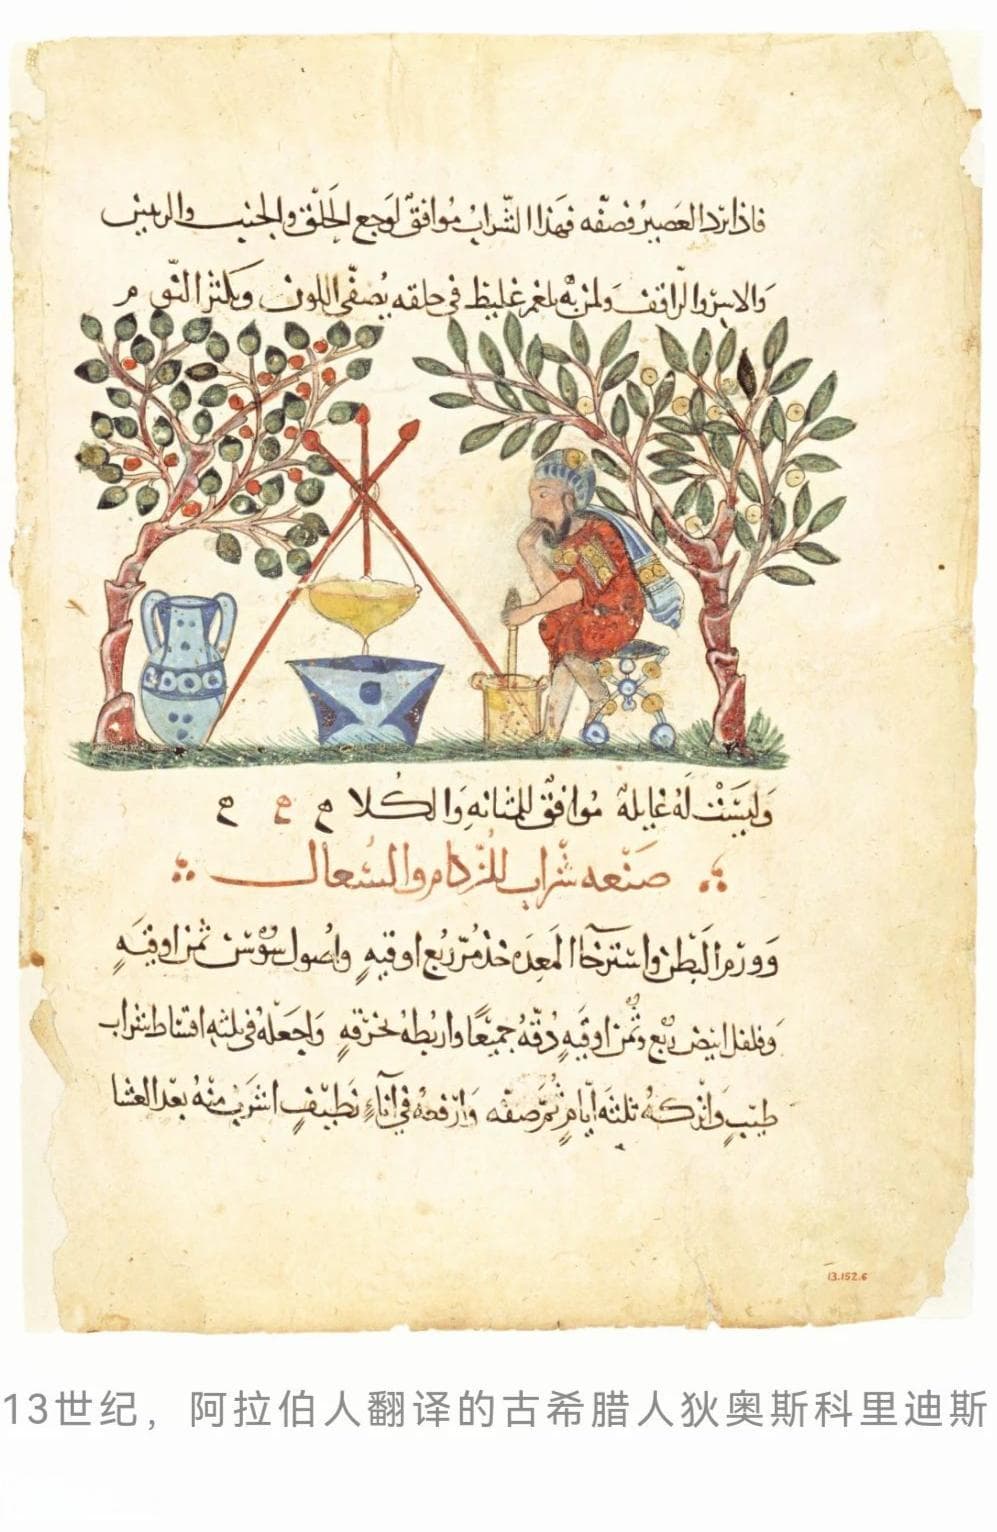 فاذا برد العصير فصفه فهذا الشراب موافق لوجع الحلق والجنب والريتين
بلغم غليظ في حلقه يصفي اللون ويكثر النوم
وليست له غايلة موافق للمثانه والكلا ح ح ح
صنعه شراب للزكام والسعال
وورم البطن واسترخا المعده خذ مر ربع اوقيه واصول سوسن ثمن اوقيه
وفلفل ابيض ربع وثمن اوقيه دقه جميعا واربطه بخرقه واجعله في ثلثه اقساط شراب
طيب واتركه ثلثه ايام ثم صفه وارفعه في اناء نظيف اشرب منه بعد العشا
13.152.6
13世纪，阿拉伯人翻译的古希腊人狄奥斯科里迪斯